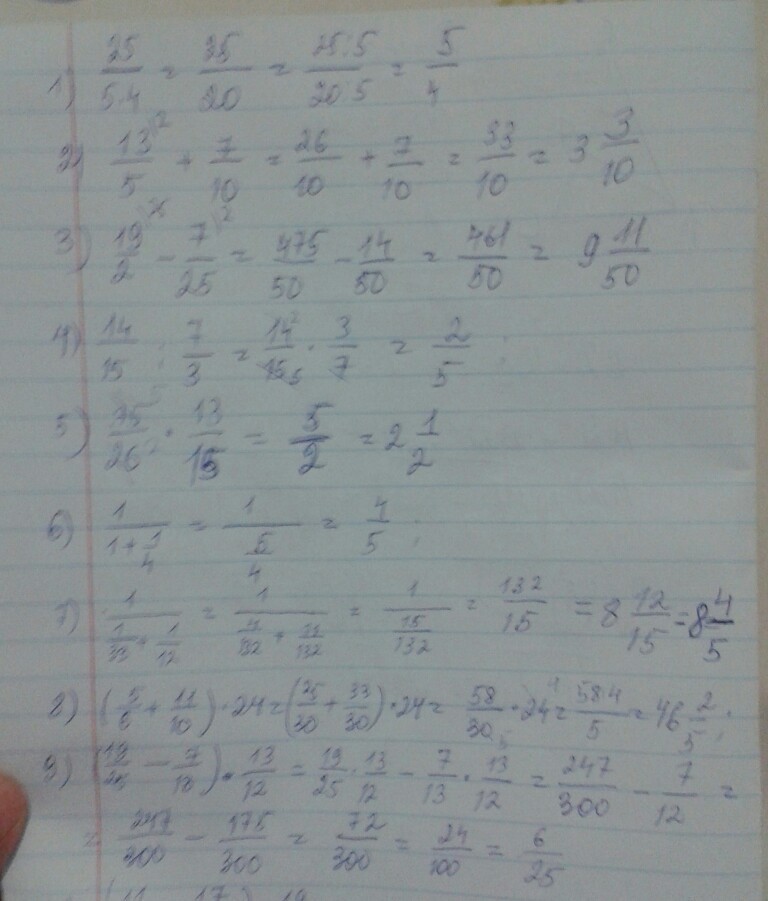 1) 25/5·4 = 25/20 = 25:5/20:5 = 5/4
2) 13/5 + 7/10 = 26/10 + 7/10 = 33/10 = 3 3/10
3) 19/2 - 7/25 = 475/50 - 14/50 = 461/50 = 9 11/50
4) 14/15 : 7/3 = 14/15 · 3/7 = 2/5 ;
5) 75/26 · 13/15 = 5/2 = 2 1/2
6) 1/(1+1/4) = 1/(5/4) = 4/5 ;
7) 1/(1/33 + 1/12) = 1/(4/132 + 11/132) = 1/(15/132) = 132/15 = 8 12/15 = 8 4/5
8) (5/6 + 11/10) · 24 = (25/30 + 33/30) · 24 = 58/30 · 24 = 58·4/5 = 46 2/5 ;
9) (19/25 - 7/13) · 13/12 = 19/25 · 13/12 - 7/13 · 13/12 = 247/300 - 7/12 =
= 247/300 - 175/300 = 72/300 = 24/100 = 6/25